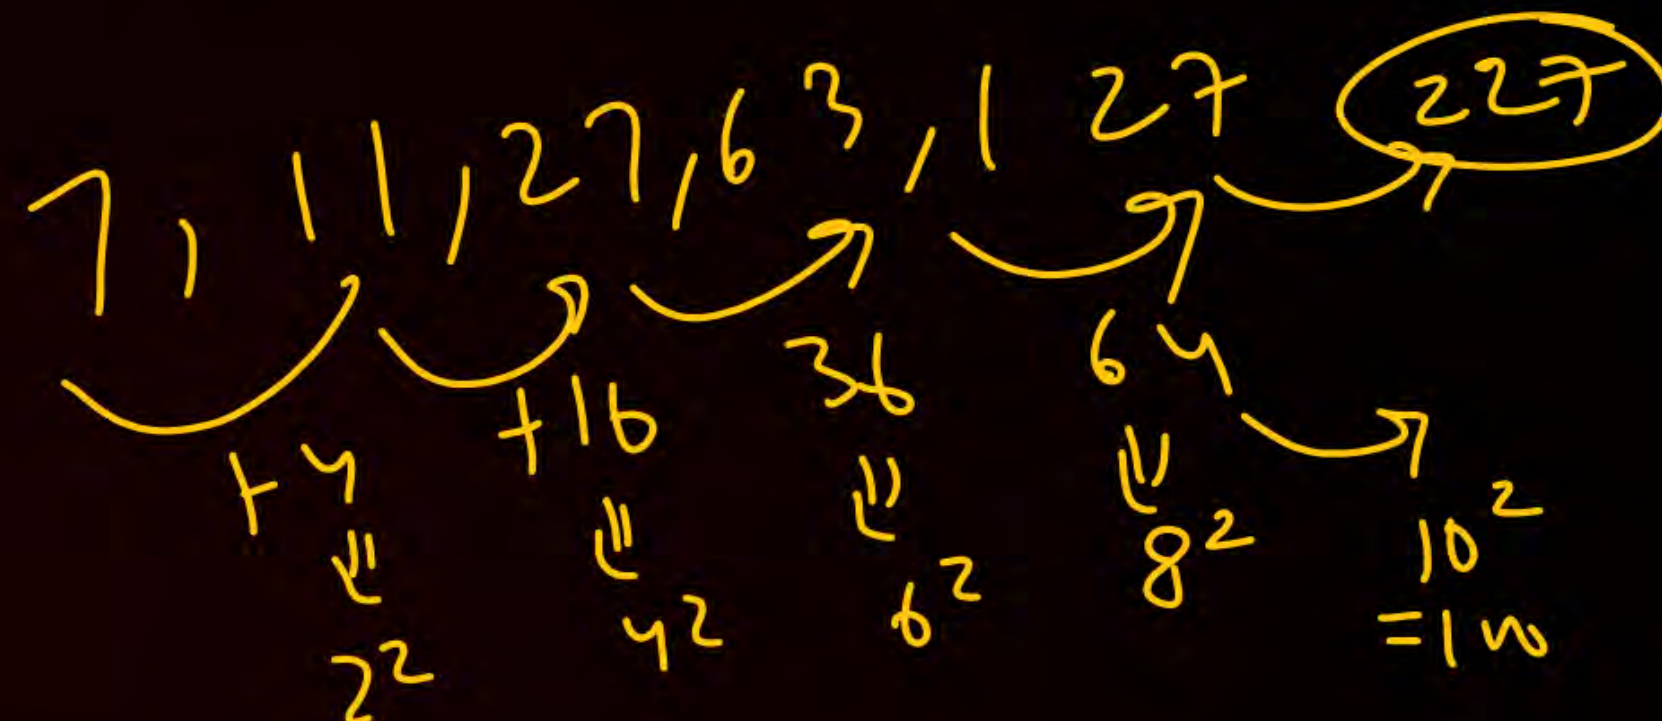 7, 11, 27, 63, 127 227
+4 +16 36 64
2² 4² 6² 8² 10²
=100